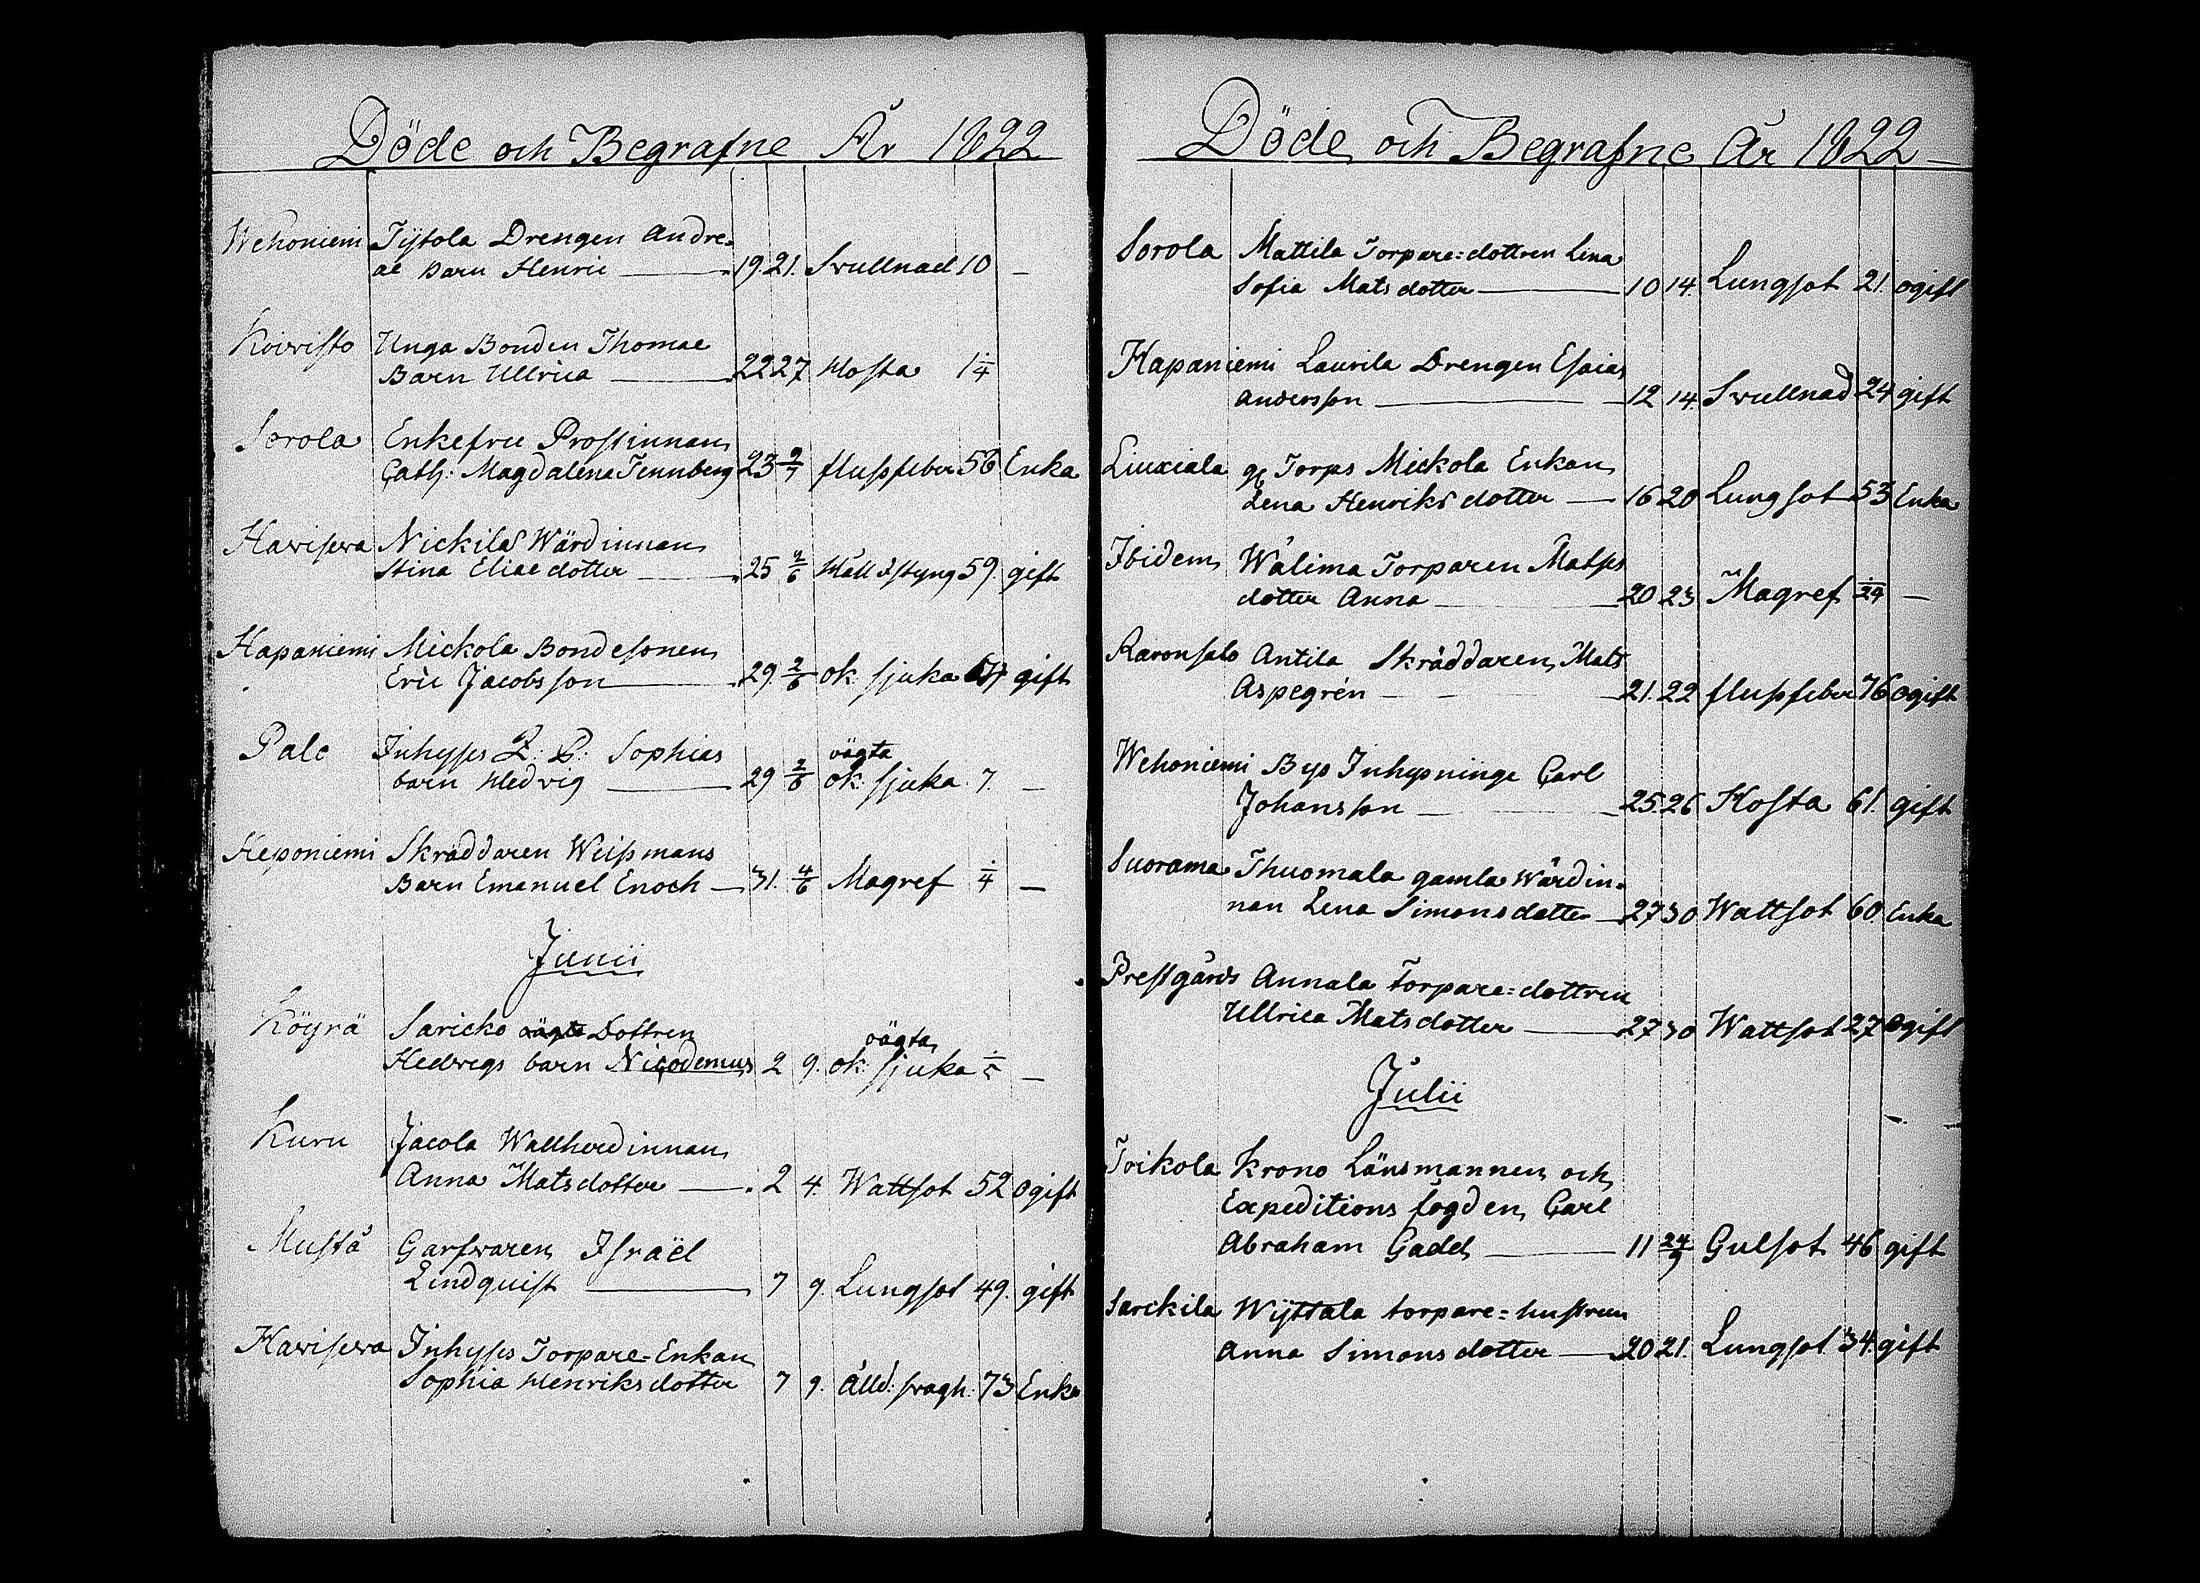 Döde och Begrafne År 1822
Wehoniemi Tÿstola Drengen Andre-
ae Barn Henric 19. 21. Svullnad 10 —
Koivisto Unga Bonden Thomae
Barn Ullrica 22 27 Hosta 1 1/4
Sorola Enkefru Prostinnan
Cath: Magdalena Tennberg 23 2/7 flussfeber 56 Enka
Haviseva Nickilä Wärdinnan
Stina Eliae dotter 25 2/6 Håll o styng 59. gift
Hapaniemi Mickola Bondesonen
Eric Jacobsson 29. 2/6 ok sjuka gift
Pale Inhyses Sophias oägta
barn Hedvig 29 2/6 ok. sjuka 7. —
Heponiemi Skräddaren Weissmans
Barn Emanuel Enoch 31. 4/6 Magref 1/4 —
Junii
Köyrä Saricko Dottren oägta
Hedvigs barn Nicodemus 2 9. ok: sjuka —
Kuru Jacola Wallherdinnan
Anna Matsdotter 2 4. Wattsot 52 ogift
Musta Garfvaren Israël
Lindquist 7 9. Lungsot 49. gift
Haviseva Inhyses Torpare-Enkan
Sophia Henriksdotter 7 9. Ålld: svagh: 73 Enka
Döde och Begrafne År 1822
Sorola Mattila Torpare=dottren Lena
Sofia Matsdotter 10 14. Lungsot 21. ogift
Hapaniemi Laurila Drengen Esaias
Andersson 12 14. Svullnad 24 gift
Liuxiala Torps Mickola Enkan
Lena Henriksdotter 16 20 Lungsot 53 Enka
Ibidem Wälima Torparen Matses
dotter Anna 20 23 Magref 1/24 —
Raronsalo Antila Skräddaren Mats
Aspegrén 21. 22 flussfeber 76 ogift
Wehoniemi Bys Inhysninge Carl
Johansson 25. 26 Hosta 61. gift
Suorama Thuomala gamla Wärdin-
nan Lena Simonsdotter 27 30 Wattsot 60. Enka
Prestgårds Annala Torpare=dottren
Ullrica Matsdotter 27 30 Wattsot 27 Ogift
Julii
Toikola Krono Länsmannen och
Expeditions fogden Carl
Abraham Gadd 11 24/9 Gulsot 46 gift
Sarckila Wÿttala torpare=hustrun
Anna Simonsdotter 20 21. Lungsot 34. gift